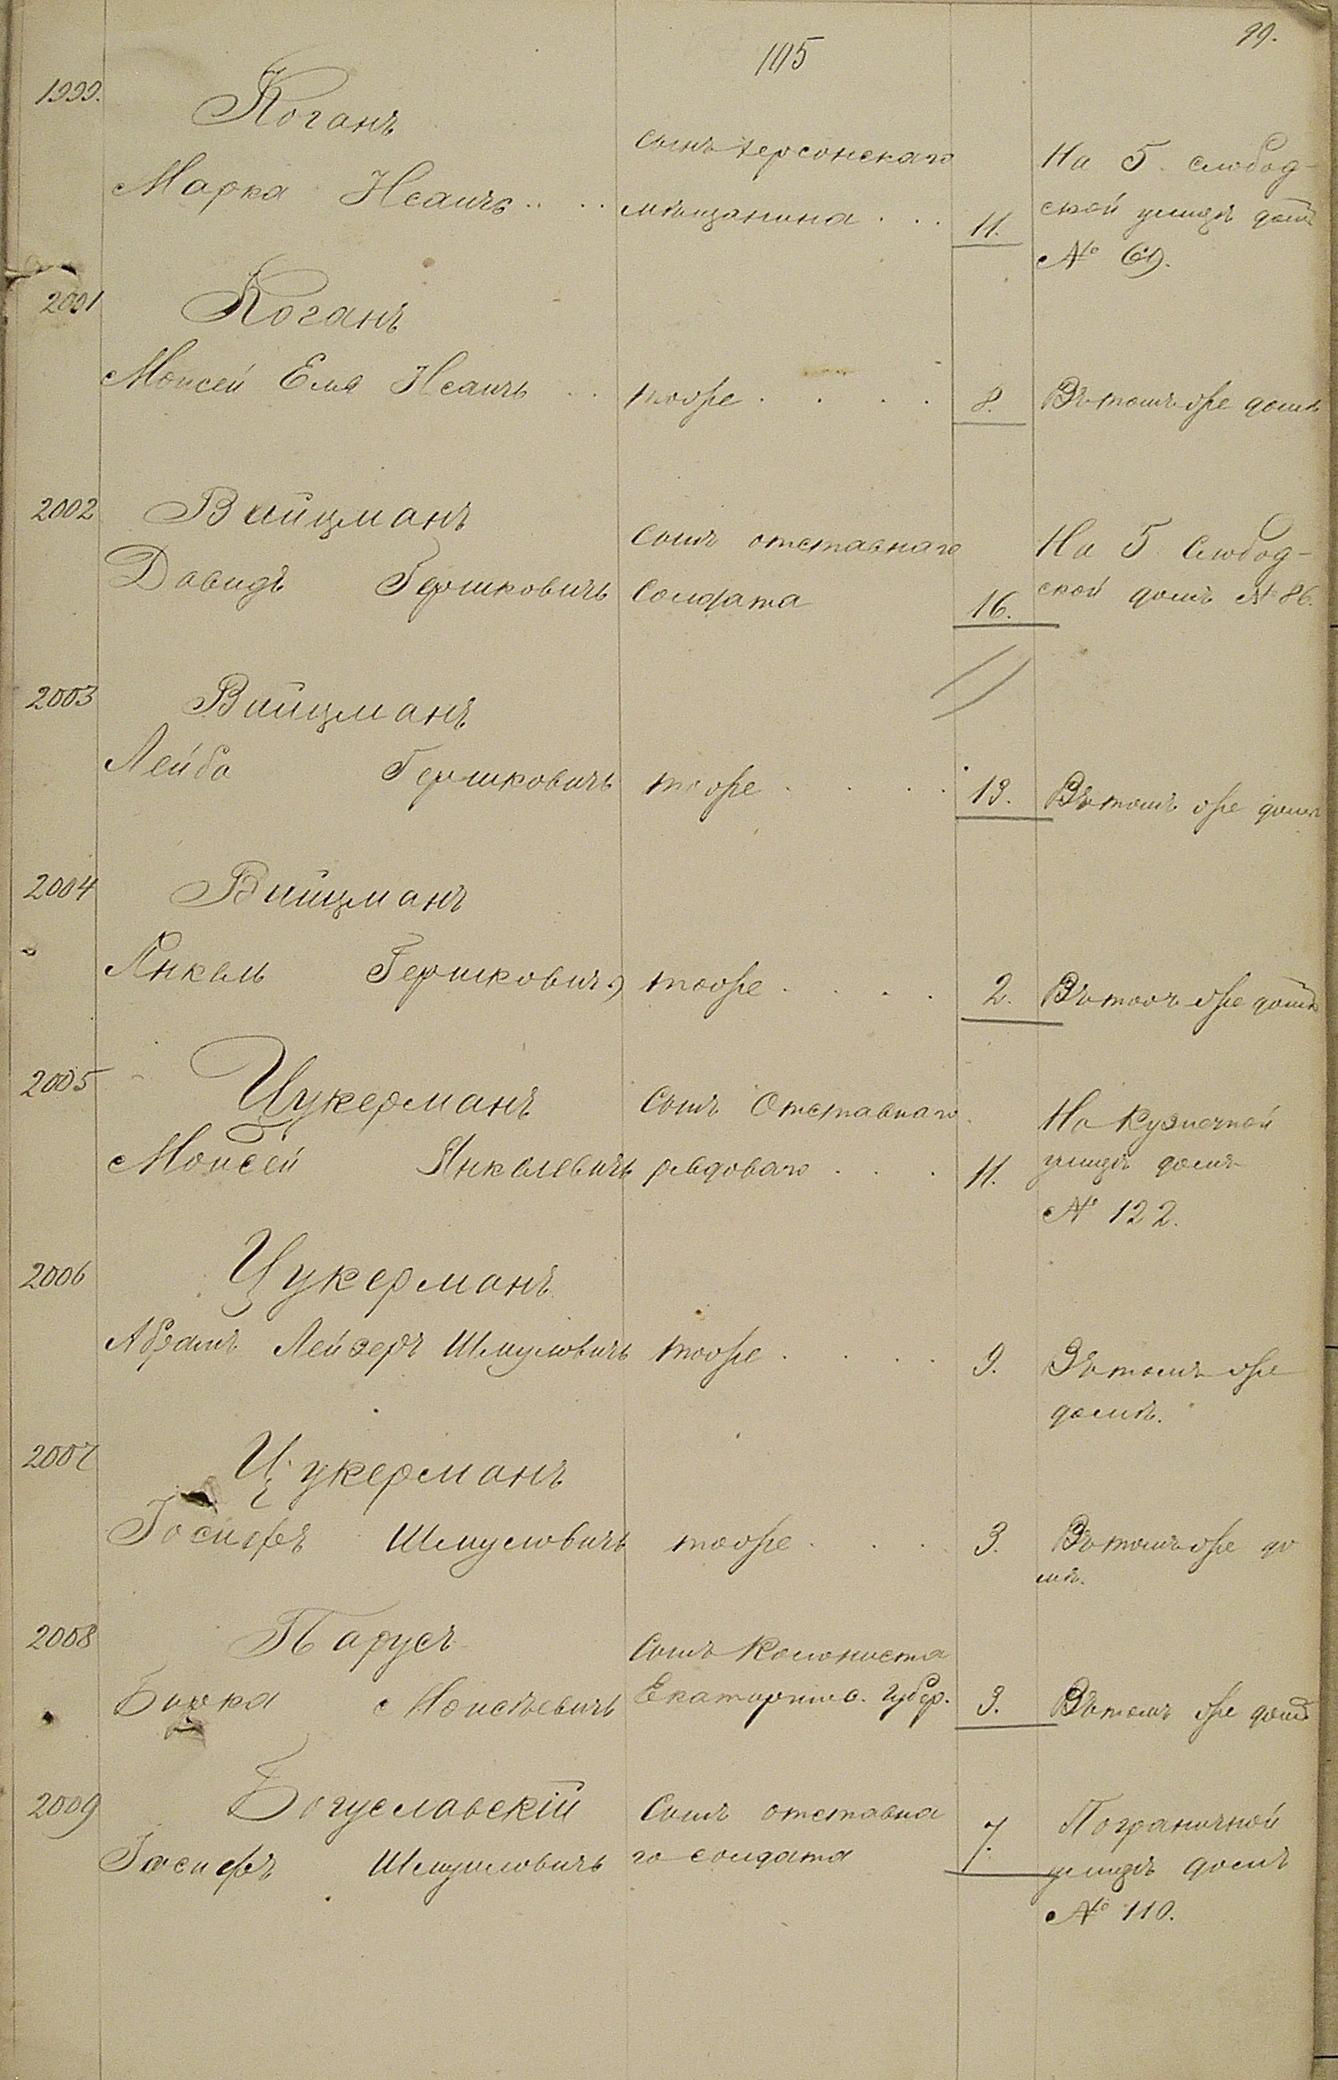 105
99.
1999.
Коганъ
Марка Исаичъ . . . .
сынъ херсонскаго
мѣщанина . . .
11.
На 5 слобод-
ской улицѣ домъ
№ 69.
2001
Коганъ
Моисей Еля Исаичъ . .
тоже . . . .
8.
Въ томъ же домѣ
2002
Вайцманъ
Давидъ Гершковичъ
сынъ отставнаго
солдата
16.
На 5 Слобод-
ской домъ № 86.
2003
Вайцманъ
Лейба Гершковичъ
тоже . . . .
13.
Въ томъ же домѣ
2004
Вайцманъ
Янкель Гершковичъ
тоже . . . .
2.
Въ томъ же домѣ
2005
Цукерманъ
Моисей Янкелевичъ
Сынъ Отставнаго
рядоваго . . .
11.
На Кузнечной
улицѣ домъ
№ 122.
2006
Цукерманъ
Абрамъ Лейзеръ Шмуловичъ
тоже . . . .
9.
Въ томъ же
домѣ.
2007
Цукерманъ
Іосифъ Шмуловичъ
тоже . . .
3.
Въ томъ же до
мѣ.
2008
Парусъ
Борка Моисѣевичъ
Сынъ Колониста
Екатеринос. губер.
3.
Въ томъ же домѣ
2009
Богуславскій
Іосифъ Шмуиловичъ
Сынъ отставна
го солдата
7.
Пограничной
улицѣ домъ
№ 110.